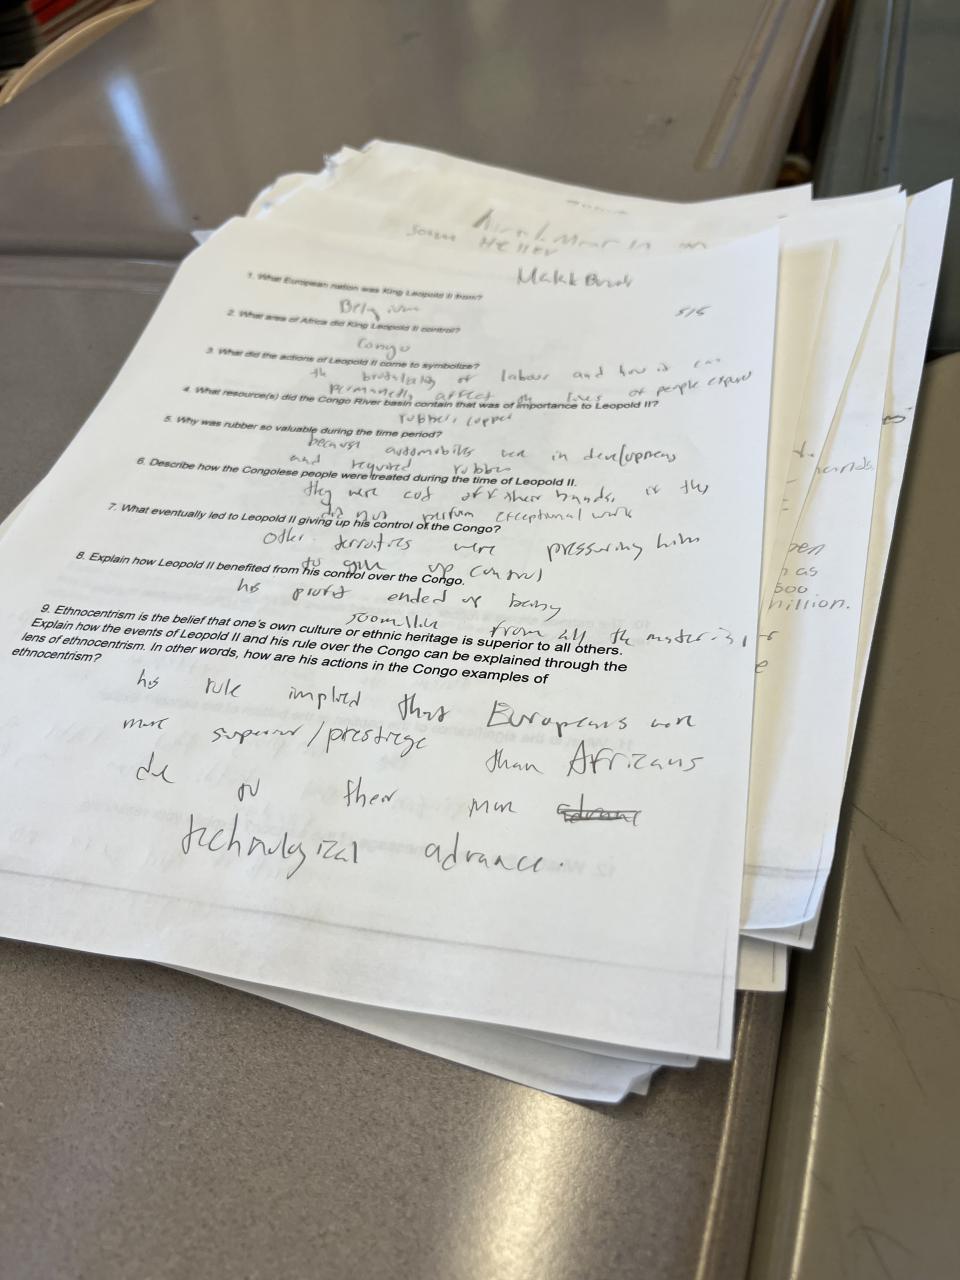 Makk
5/5
1. What European nation was King Leopold II from?
Belgium
2. What area of Africa did King Leopold II control?
Congo
3. What did the actions of Leopold II come to symbolize?
the brutality of labour and how it can
permanently affect the lives of people
4. What resource(s) did the Congo River basin contain that was of importance to Leopold II?
rubber, copper
5. Why was rubber so valuable during the time period?
because automobiles in
and required rubber
6. Describe how the Congolese people were treated during the time of Leopold II.
they were cut off their hands, if they
did not perform exceptional work
7. What eventually led to Leopold II giving up his control of the Congo?
Other were pressuring him
to give up control
8. Explain how Leopold II benefited from his control over the Congo.
his profit ended up
from all the
9. Ethnocentrism is the belief that one's own culture or ethnic heritage is superior to all others.
Explain how the events of Leopold II and his rule over the Congo can be explained through the
lens of ethnocentrism. In other words, how are his actions in the Congo examples of
ethnocentrism?
his rule implied that Europeans were
more superior/prestige than Africans
their more
technological advance.
hands.
pen
as
500
million.